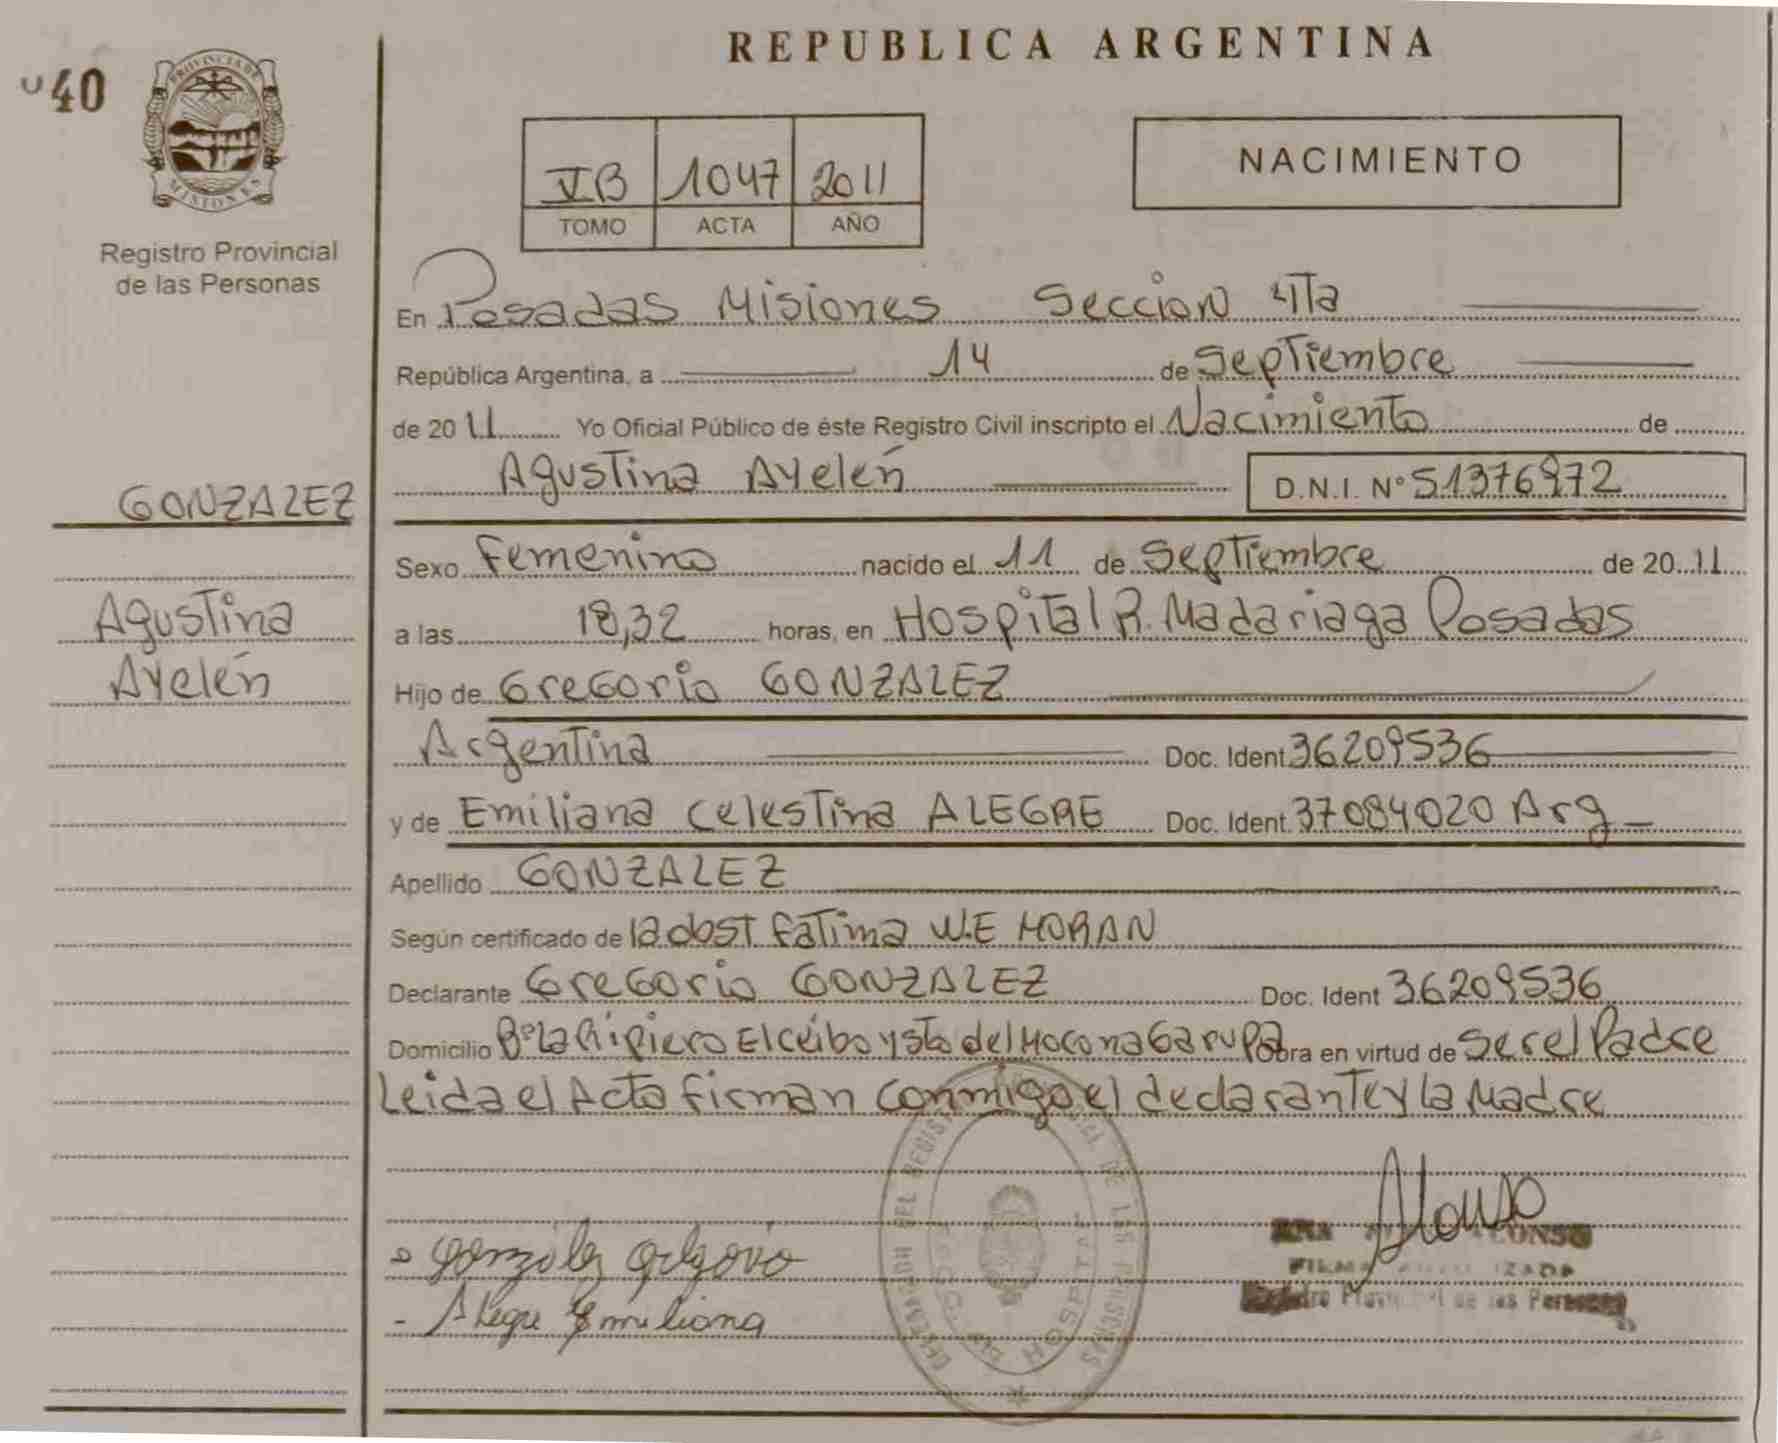 REPUBLICA ARGENTINA
40
PROVINCIA DE
MISIONES
Registro Provincial
de las Personas
VB 1047 2011
TOMO ACTA AÑO
NACIMIENTO
En Posadas Misiones Seccion 4Ta
República Argentina, a 14 de Septiembre
de 2011 Yo Oficial Público de éste Registro Civil inscripto el Nacimiento de
Agustina Ayelén D.N.I. N° 51376972
GONZALEZ
Agustina
Ayelén
Sexo Femenino nacido el 11 de Septiembre de 2011
a las 18,32 horas, en Hospital R. Madariaga Posadas
Hijo de Gregorio GONZALEZ
Argentina Doc. Ident 36209536
y de Emiliana Celestina ALEGRE Doc. Ident. 37084020 Arg
Apellido GONZALEZ
Según certificado de la obst Fatima W.E MORAN
Declarante Gregorio GONZALEZ Doc. Ident 36209536
Domicilio B° La Ripiera El ceibo y sto del Mocona Garupa Obra en virtud de Ser el Padre
Leida el Acta firman conmigo el declarante y la Madre
Gonzalez
Alegre Emiliana
Alonso
Personas
HOSPITAL